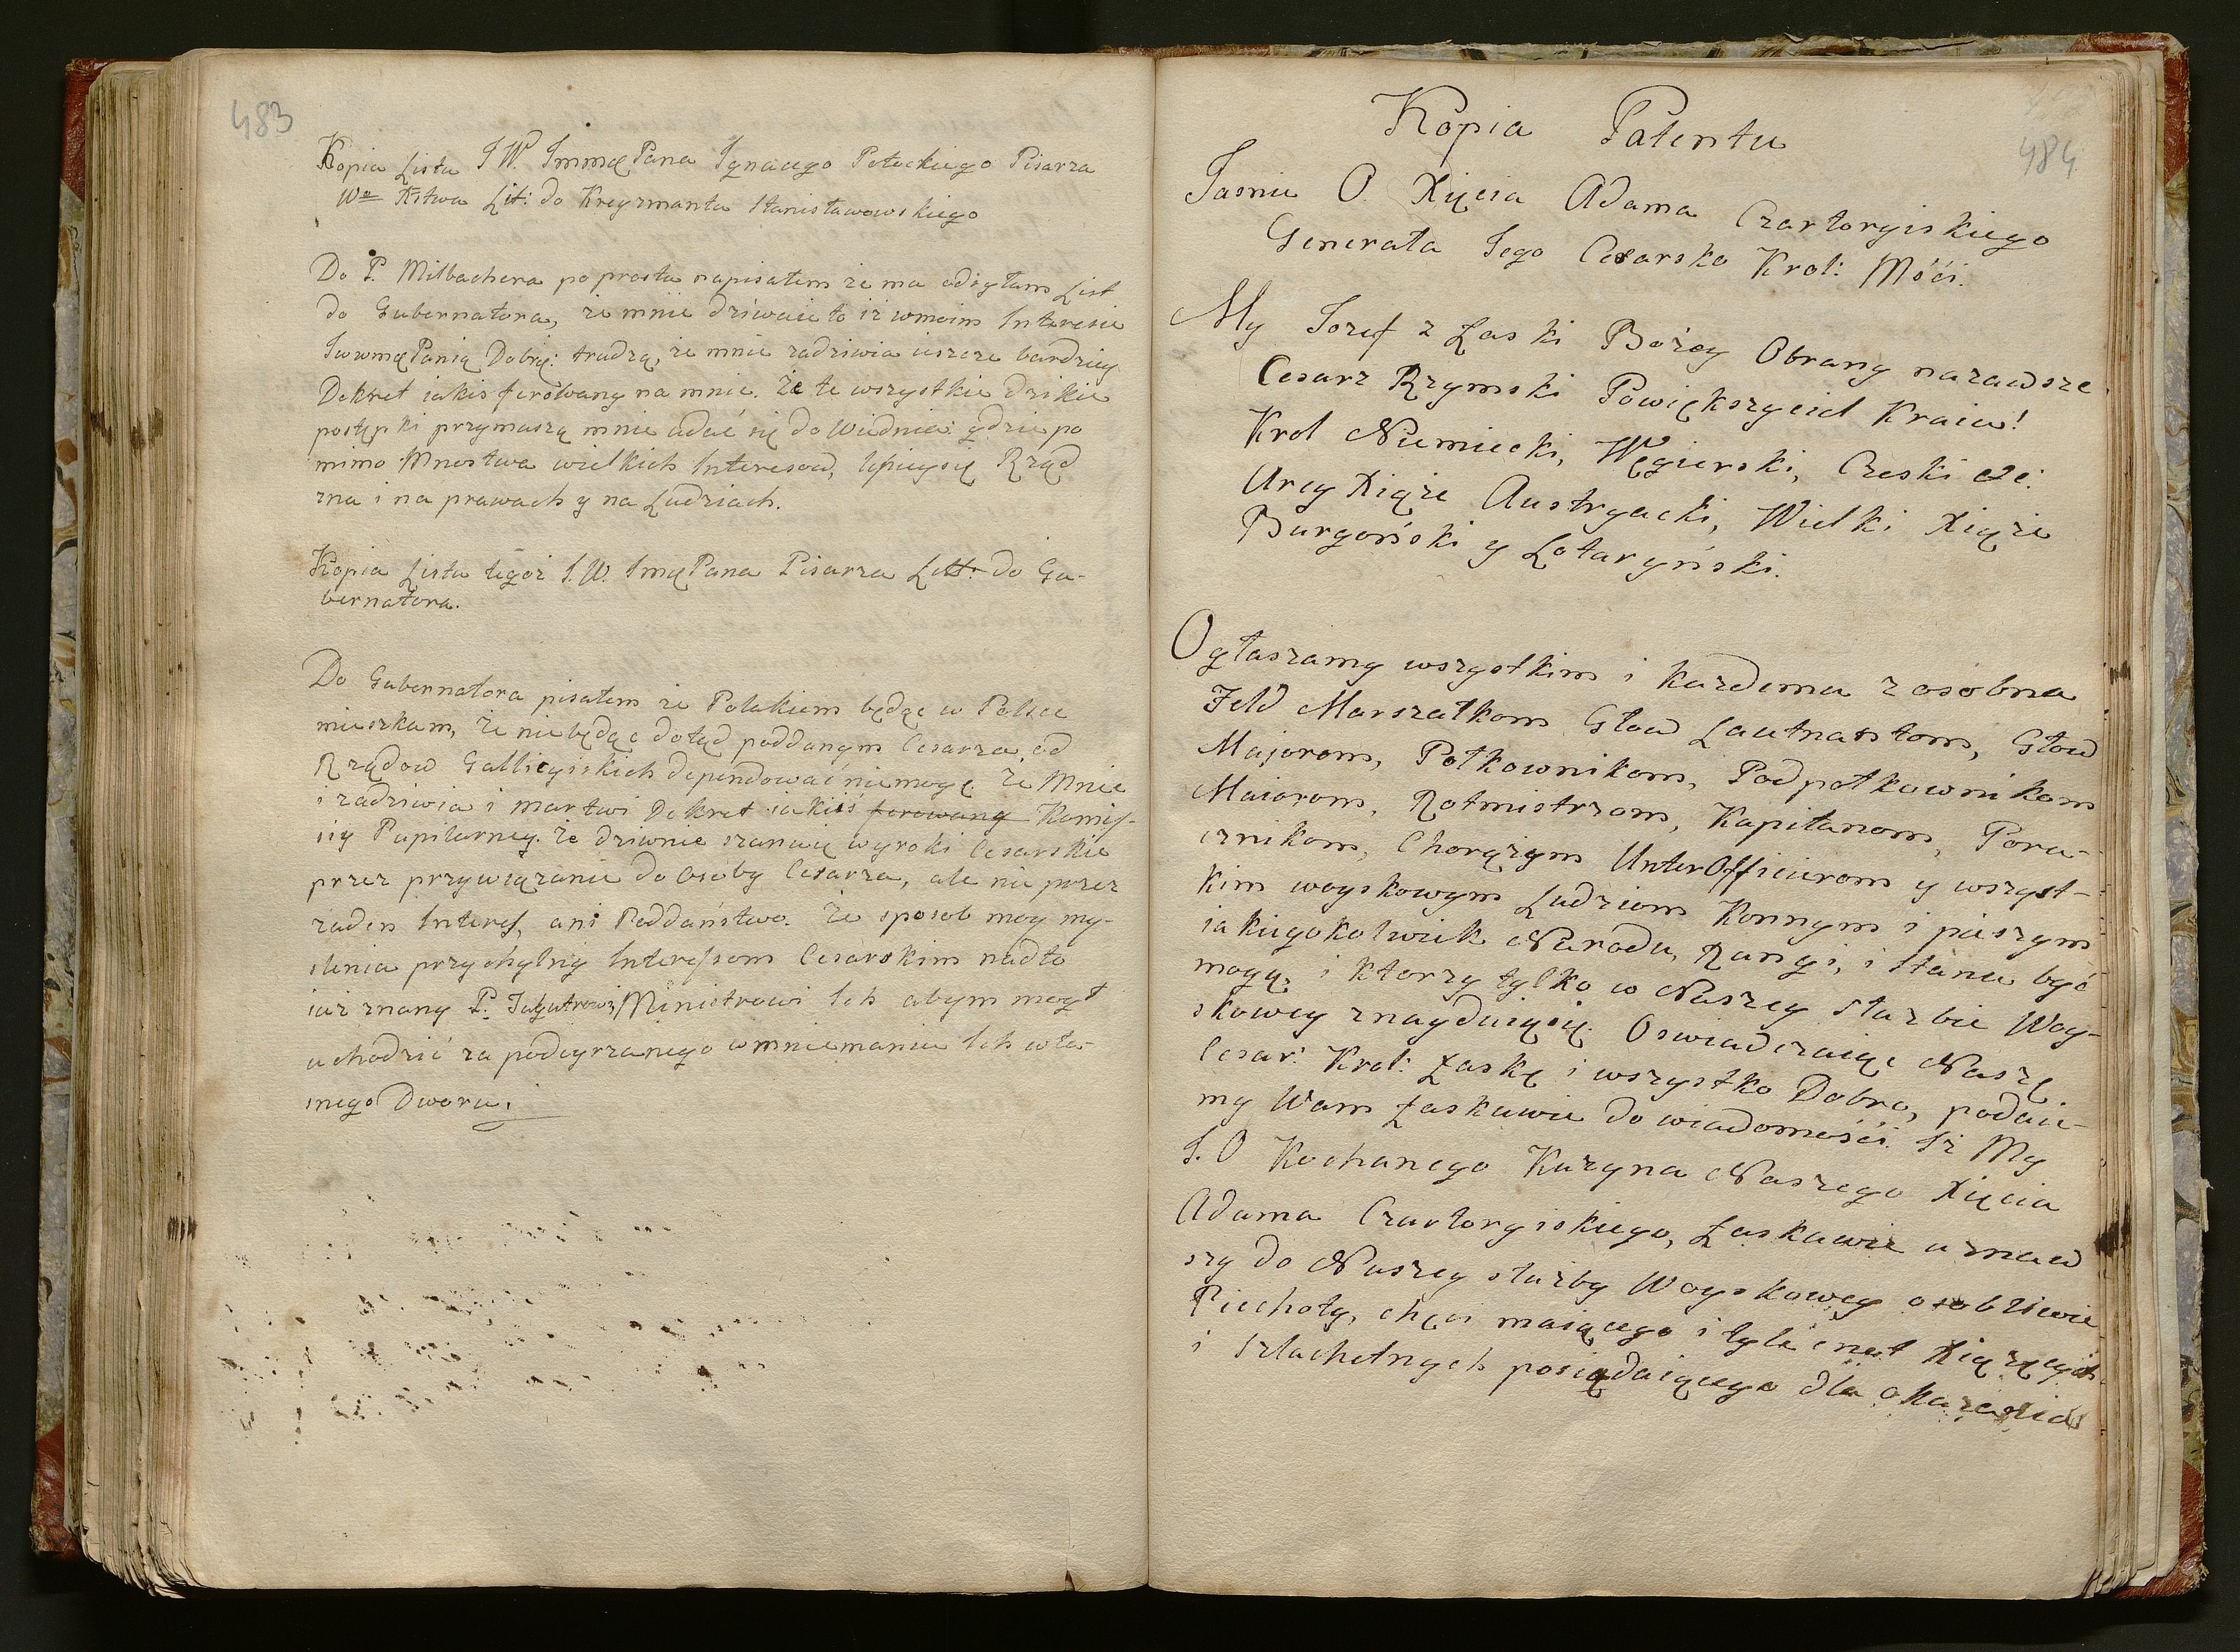 483
Kopia Listu J W. Jmmę Pana Jgnacego Potockiego Pisarza
Wo Xstwa Lit: do Kreyzmanta Stanisławowskiego
Do P. Milbachera po prostu napisałem że mu odsyłam List
do Gubernatora, że mnie dziwuie to iż w moim Interesie
Jwwmę Panią Dobrą: trudzą, że mnie zadziwia ieszcze bardziey
Dekret iakis ferowany na mnie. Że te wszystkie dzikie
postępki przymuszą mnie udać się do Wiednia: gdzie po
mimo Mnostwa wielkich Interesow, lepiey się Rząd
zna i na prawach y na Ludziach.
Kopia Listu tegoż J.W. Jmę Pana Pisarza Litt: do Gu-
bernatora.
Do Gubernatora pisałem że Polakiem będąc w Polsce
mieszkam, że nie będąc dotąd poddanym Cesarza, od
Rządow Gallicyiskich dependować nie mogę. że Mnie
i zadziwia i martwi Dekret iakiiś ferowany Komis-
sij Pupilarney. że dziwnie szanuię wyroki Cesarskie
przez przywiązanie do Osoby Cesarza, ale nie przez
żaden Interes, ani Poddaństwo. Że sposob moy my-
slenia przychylny Interessom Cesarskim nadto
iuż znany P. Ministrowi Ich abym mogł
uchodzić za podeyrzanego w mniemaniu Ich wła-
snego Dworu.
484
Kopia Patentu
Jasnie O. Xięcia Adama Czartoryiskiego
Generała Jego Cesarsko Krol: Mości.
My Jozef z Łaski Bożey Obrany nazawsze
Cesarz Rzymski Powiększyciel Kraiu!
Krol Niemiecki, Węgierski, Czeski etc:
Arcy Xiąże Austryacki, Wielki Xiąże
Burgoński y Lotaryński.
Ogłaszamy wszystkim i każdemu z osobna
Feld Marszałkom Głow Lautnantom, Głow
Majorom, Połkownikom, Podpołkownikom
Maiorom, Rotmistrzom, Kapitanom, Poru-
cznikom, Chorążym UnterOfficierom y wszyst-
kim woyskowym Ludziom Konnym i pieszym
iakiegokolwiek Narodu, Rangi, i Stanu być
mogą, i ktorzy tylko w Naszey służbie Woy-
skowey znayduią się. Oswiadczaiąc Naszę
Cesar: Krol: Łaskę i wszystko Dobro, podaie-
my Wam Łaskawie do wiadomości Iż My
J.O Kochanego Kuzyna Naszego Xięcia
Adama Czartoryiskiego, Łaskawie uznaw
szy do Naszey służby Woyskowey osobliwie
Piechoty, chęci maiącego i tyle cnot Xiążęcych
i Szlachetnych posiadaiącego dla okazania